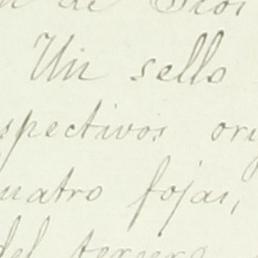 de Dios
Un sello
spectivos ori
uatro fojas,
del tercero